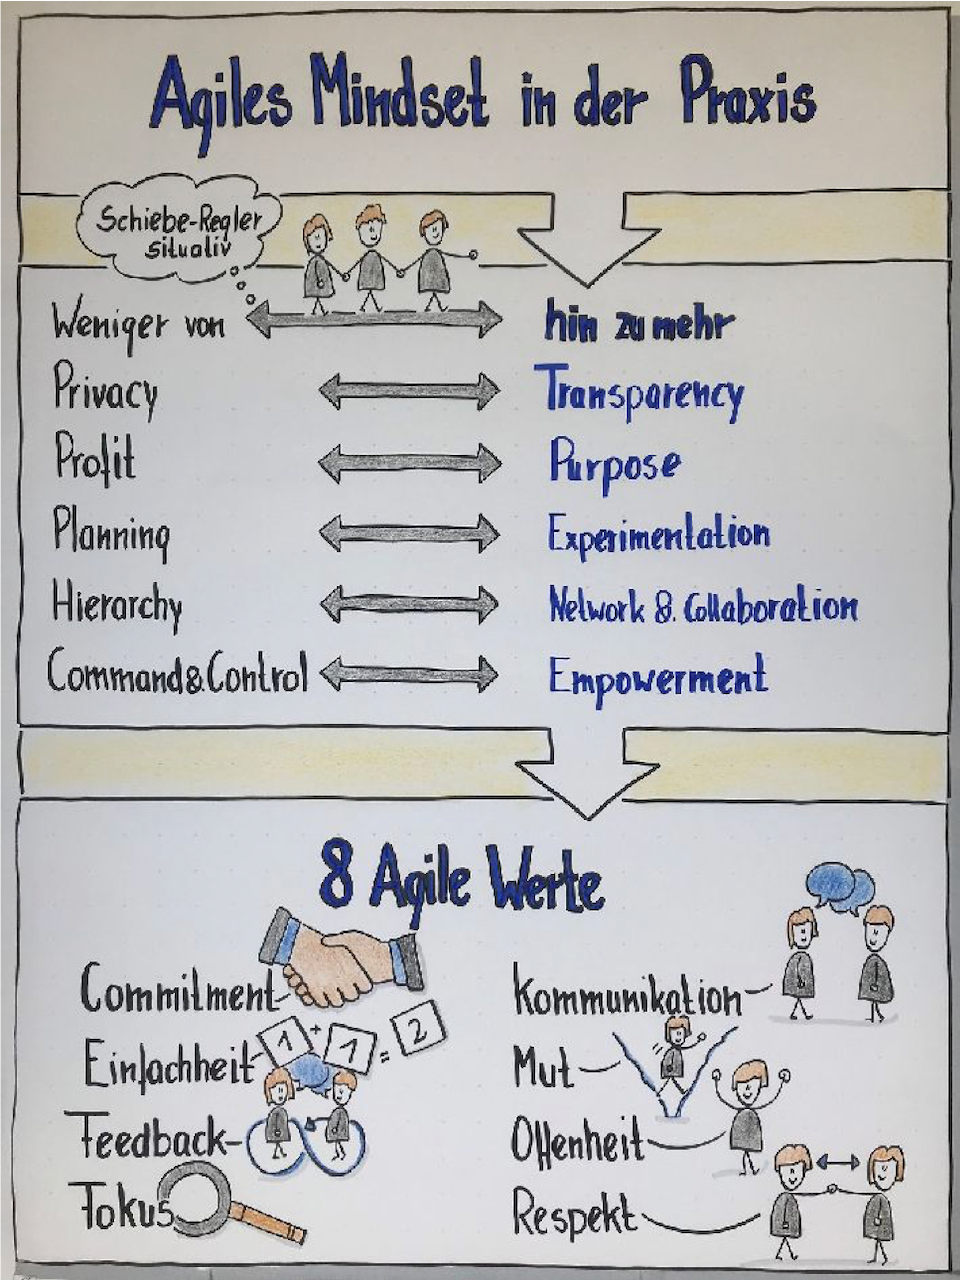 Agiles Mindset in der Praxis
Schiebe-Regler
situativ
Weniger von hin zu mehr
Privacy Transparency
Profit Purpose
Planning Experimentation
Hierarchy Network & Collaboration
Command & Control Empowerment
8 Agile Werte
Commitment
Einfachheit 1 + 1 = 2
Feedback
Fokus
Kommunikation
Mut
Offenheit
Respekt